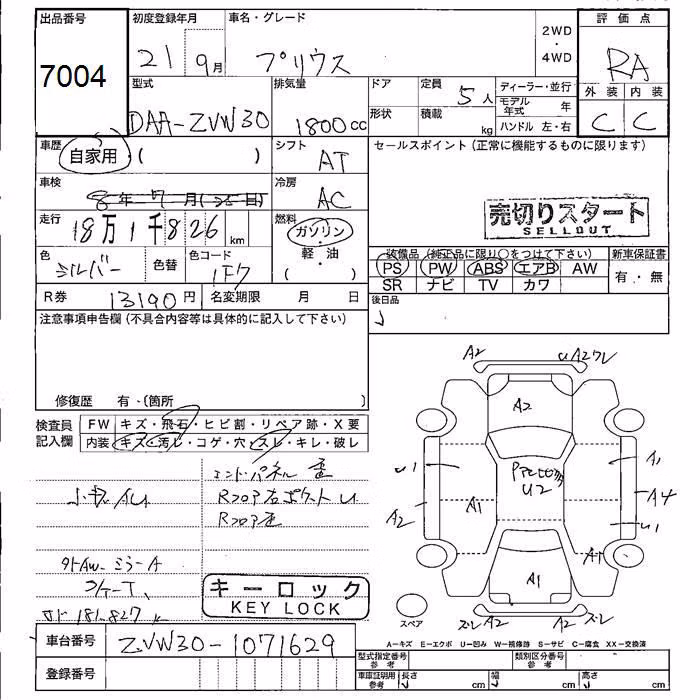 出品番号 初度登録年月 車名・グレード 2WD・4WD 評価点
7004 21年 9月 プリウス RA
型式 排気量 ドア 定員 5人 ディーラー・並行 外装 内装
DAA-ZVW30 1800cc 形状 積載 kg モデル年式 年 C C
ハンドル 左・右
車歴 自家用・( ) シフト AT セールスポイント(正常に機能するものに限ります)
車検 冷房 AC
売切りスタート
SELLOUT
走行 18万1千826km 燃料 ガソリン・軽・油 ( )
装備品(純正品に限り○をつけて下さい) 新車保証書
色 シルバー 色替 色コード 1F7
PS PW ABS エアB AW 有・無
SR ナビ TV カワ
R券 13190円 名変期限 月 日 後日品
注意事項申告欄(不具合内容等は具体的に記入して下さい)
修復歴 有・(箇所
検査員記入欄 FW キズ・飛石・ヒビ割・リペア跡・X要
内装 キズ・汚レ・コゲ・穴・スレ・キレ・破レ
エンドパネル
小キズ AU
Rフロア右 U
Rフロア左
外AW ミラーA
キーロック
KEY LOCK
A2 A2ワレ
A2
U1 A1
U2
A1 A4
A2 U1
A1
A1
スペア
ズレ A2 A2 ズレ
A-キズ E-エクボ U-凹み W-補修跡 S-サビ C-腐食 XX-交換済
車台番号 ZVW30-1071629
型式指定番号 参考 類別区分番号 参考
登録番号
車庫証明用 参考 長さ cm 幅 cm 高さ cm